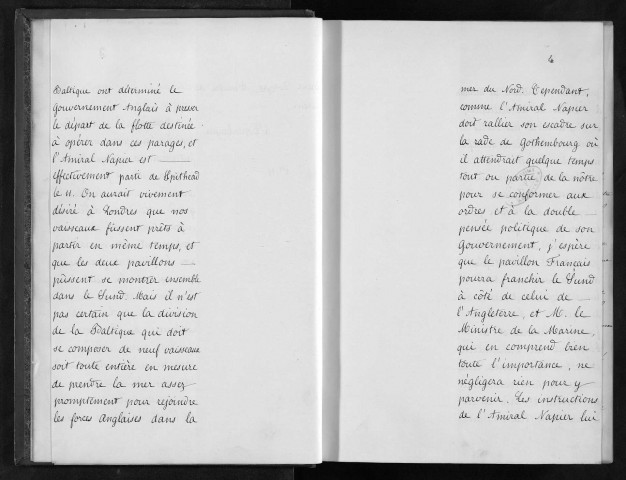 Baltique ont déterminé le
Gouvernement Anglais à presser
le départ de la flotte destinée
à opérer dans ces parages, et
l'Amiral Napier est
effectivement parti de Spithead
le 11. On aurait vivement
désiré à Londres que nos
vaisseaux fussent prêts à
partir en même temps, et
que les deux pavillons
pussent se montrer ensemble
dans le Sund. Mais il n'est
pas certain que la division
de la Baltique qui doit
se composer de neuf vaisseaux
soit toute entière en mesure
de prendre la mer assez
promptement pour rejoindre
les forces anglaises dans la
mer du Nord. Cependant,
comme l'Amiral Napier
doit rallier son escadre sur
la rade de Gothembourg où
il attendrait quelque temps
tout ou partie de la nôtre
pour se conformer aux
ordres et à la double
pensée politique de son
Gouvernement, j'espère
que le pavillon Français
pourra franchir le Sund
à côté de celui de
l'Angleterre, et M. le
Ministre de la Marine,
qui en comprend bien
toute l'importance, ne
négligera rien pour y
parvenir. Les instructions
de l'Amiral Napier lui